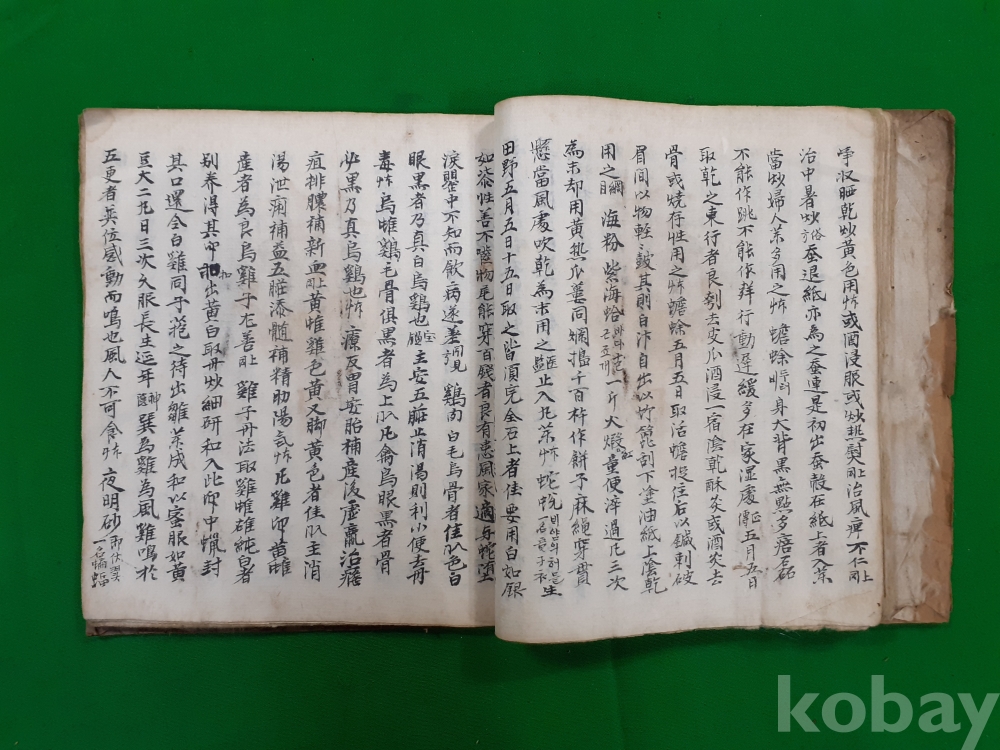 收晒乾炒黃色用怖或酒浸服或炒熱熨同上治風痺不仁同上
治中暑炒俗方蚕退紙亦為之蚕連是初出蚕殼在紙上者入茶
當炒婦人茶多用之怖 蟾蜍 身大背黑無點多痱磊
不能作跳不能作鮮行動遲緩多在家湿處正傳五月五日
取乾之東行者良剝去皮爪酒浸一宿陰乾酥灸或酒灸去
骨或燒存性用之怖蟾蜍五月五日取活蟾提住后以鍼刺破
眉間以物輕敲其則自汴自出以竹篦刮下塗油紙上陰乾
用之綱目 海粉 紫海蛤 一斤火煆童便淬過凡三次
為末却用黃熟瓜蔞同爛搗千百杵作餠子麻繩穿貫
懸當風處吹乾為末用之醫鑑止入凡茶怖 蛇蛻 一名龍子衣 生
田野五月五日十五日取之皆須完全石上者佳要用白如銀
如漆性善不噬物尾能穿百錢者良有患風家適身蛇墮
淚甖中不知而飮病遂差同見 鷄肉 白毛烏骨者佳以色白
眼黑者乃真白烏鷄也宝鑑 主安五臟止消渴則利小便去丹
毒怖烏雌鷄毛骨俱黑者為上以凡禽烏眼黑者骨
必黑乃真烏鷄也怖 療反胃安胎補產後虛羸治癰
疽排膿補新血同上黃雌雞色黃又脚黃色者佳以主消
湯泄痢補益五臟添髓補精助陽氣怖凡雞卵黃雌
產者為良烏雞子尤善同上 雞子丹法取雞雌雄純白者
別养得其卵出黃白取丹炒細研和入此卵中蠟封
其口還令白雞同子菢之待出雛茶成和以蜜服如黃
豆大二丸日三次久服長生延年神隱巽為雞為風雞鳴於
五更者英位感動而鳴也風人不可食怖 夜明砂 一名蝙蝠
kobay